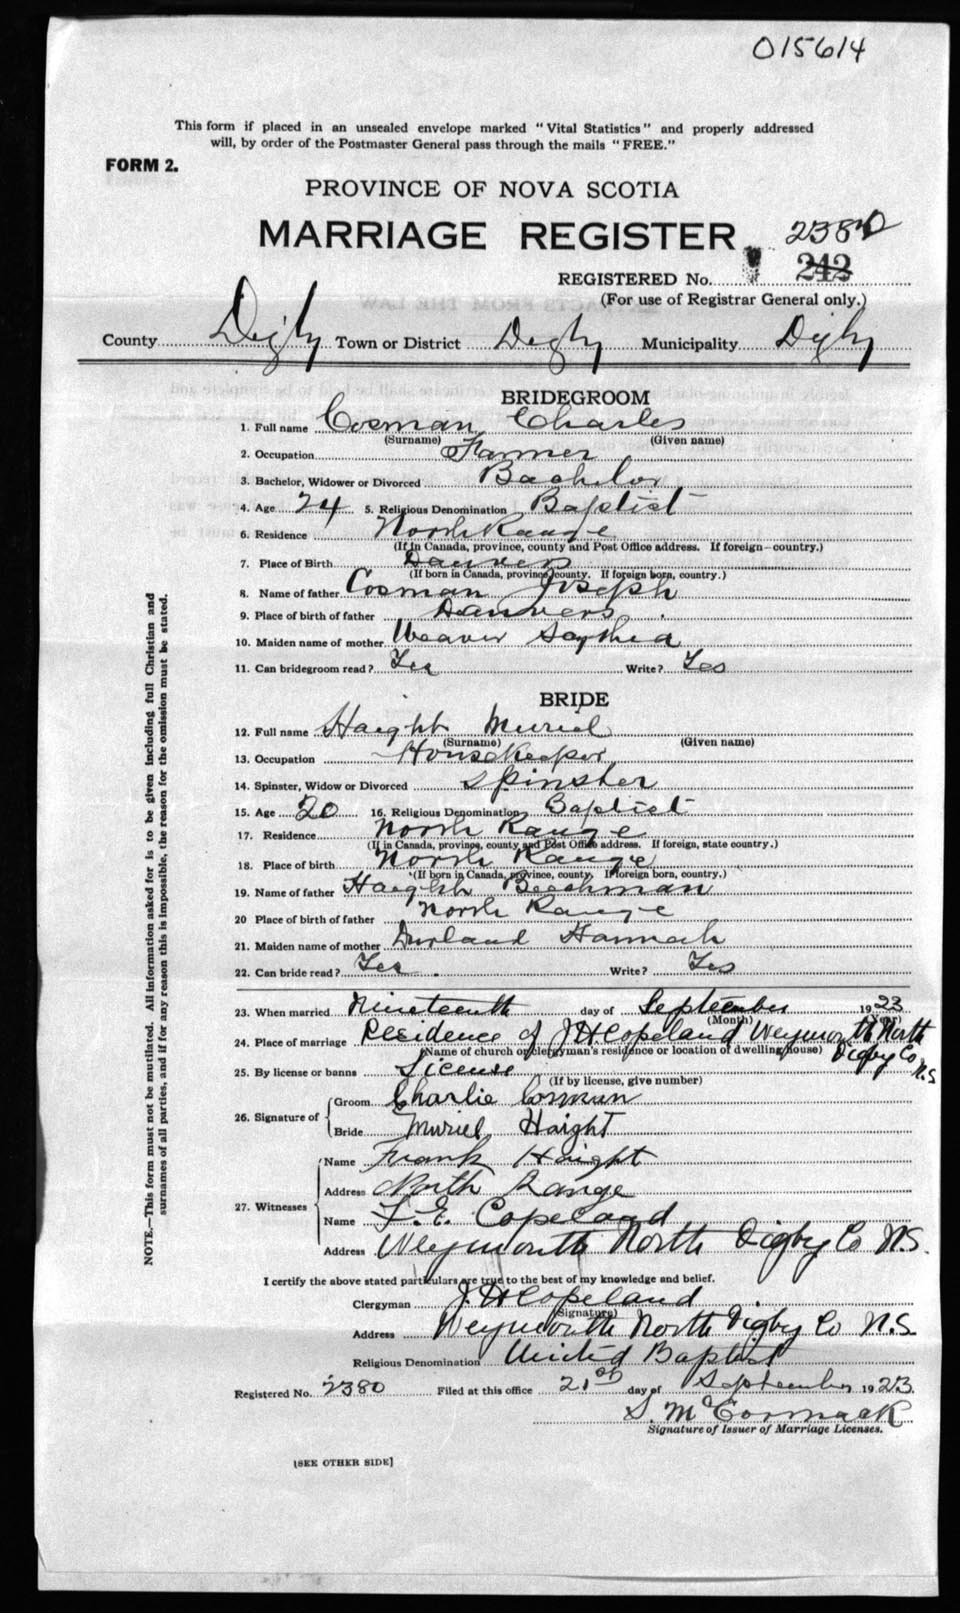 015614
This form if placed in an unsealed envelope marked "Vital Statistics" and properly addressed
will, by order of the Postmaster General pass through the mails "FREE."
FORM 2.
PROVINCE OF NOVA SCOTIA
MARRIAGE REGISTER 2380
REGISTERED No. 242
(For use of Registrar General only.)
County Digby Town or District Digby Municipality Digby
BRIDEGROOM
1. Full name Cosman Charles
(Surname) (Given name)
2. Occupation Farmer
3. Bachelor, Widower or Divorced Bachelor
4. Age 24 5. Religious Denomination Baptist
6. Residence North Range
(If in Canada, province, county and Post Office address. If foreign—country.)
7. Place of Birth Danvers
(If born in Canada, province, county. If foreign born, country.)
8. Name of father Cosman Joseph
9. Place of birth of father Danvers
10. Maiden name of mother Weaver
11. Can bridegroom read? Yes Write? Yes
BRIDE
12. Full name Haight Muriel
(Surname) (Given name)
13. Occupation Housekeeper
14. Spinster, Widow or Divorced Spinster
15. Age 20 16. Religious Denomination Baptist
17. Residence North Range
(If in Canada, province, county and Post Office address. If foreign, state country.)
18. Place of birth North Range
(If born in Canada, province, county. If foreign born, country.)
19. Name of father Haight Beechman
20 Place of birth of father North Range
21. Maiden name of mother Durland Hannah
22. Can bride read? Yes Write? Yes
23. When married Nineteenth day of September 1923
(Month) (Year)
24. Place of marriage Residence of J H Copeland Weymouth North
(Name of church or clergyman's residence or location of dwelling house) Digby Co
N.S
25. By license or banns License
(If by license, give number)
26. Signature of Groom Charlie Cosman
Bride Muriel Haight
27. Witnesses Name Frank Haight
Address North Range
Name F. E. Copeland
Address Weymouth North Digby Co N.S.
I certify the above stated particulars are true to the best of my knowledge and belief.
Clergyman J. H Copeland
(Signature)
Address Weymouth North Digby Co N.S.
Religious Denomination United Baptist
Registered No. 2380 Filed at this office 21st day of September 1923
S. McCormack
Signature of Issuer of Marriage Licenses.
[SEE OTHER SIDE]
NOTE.—This form must not be mutilated. All information asked for is to be given including full Christian and
surnames of all parties, and if for any reason this is impossible, the reason for the omission must be stated.